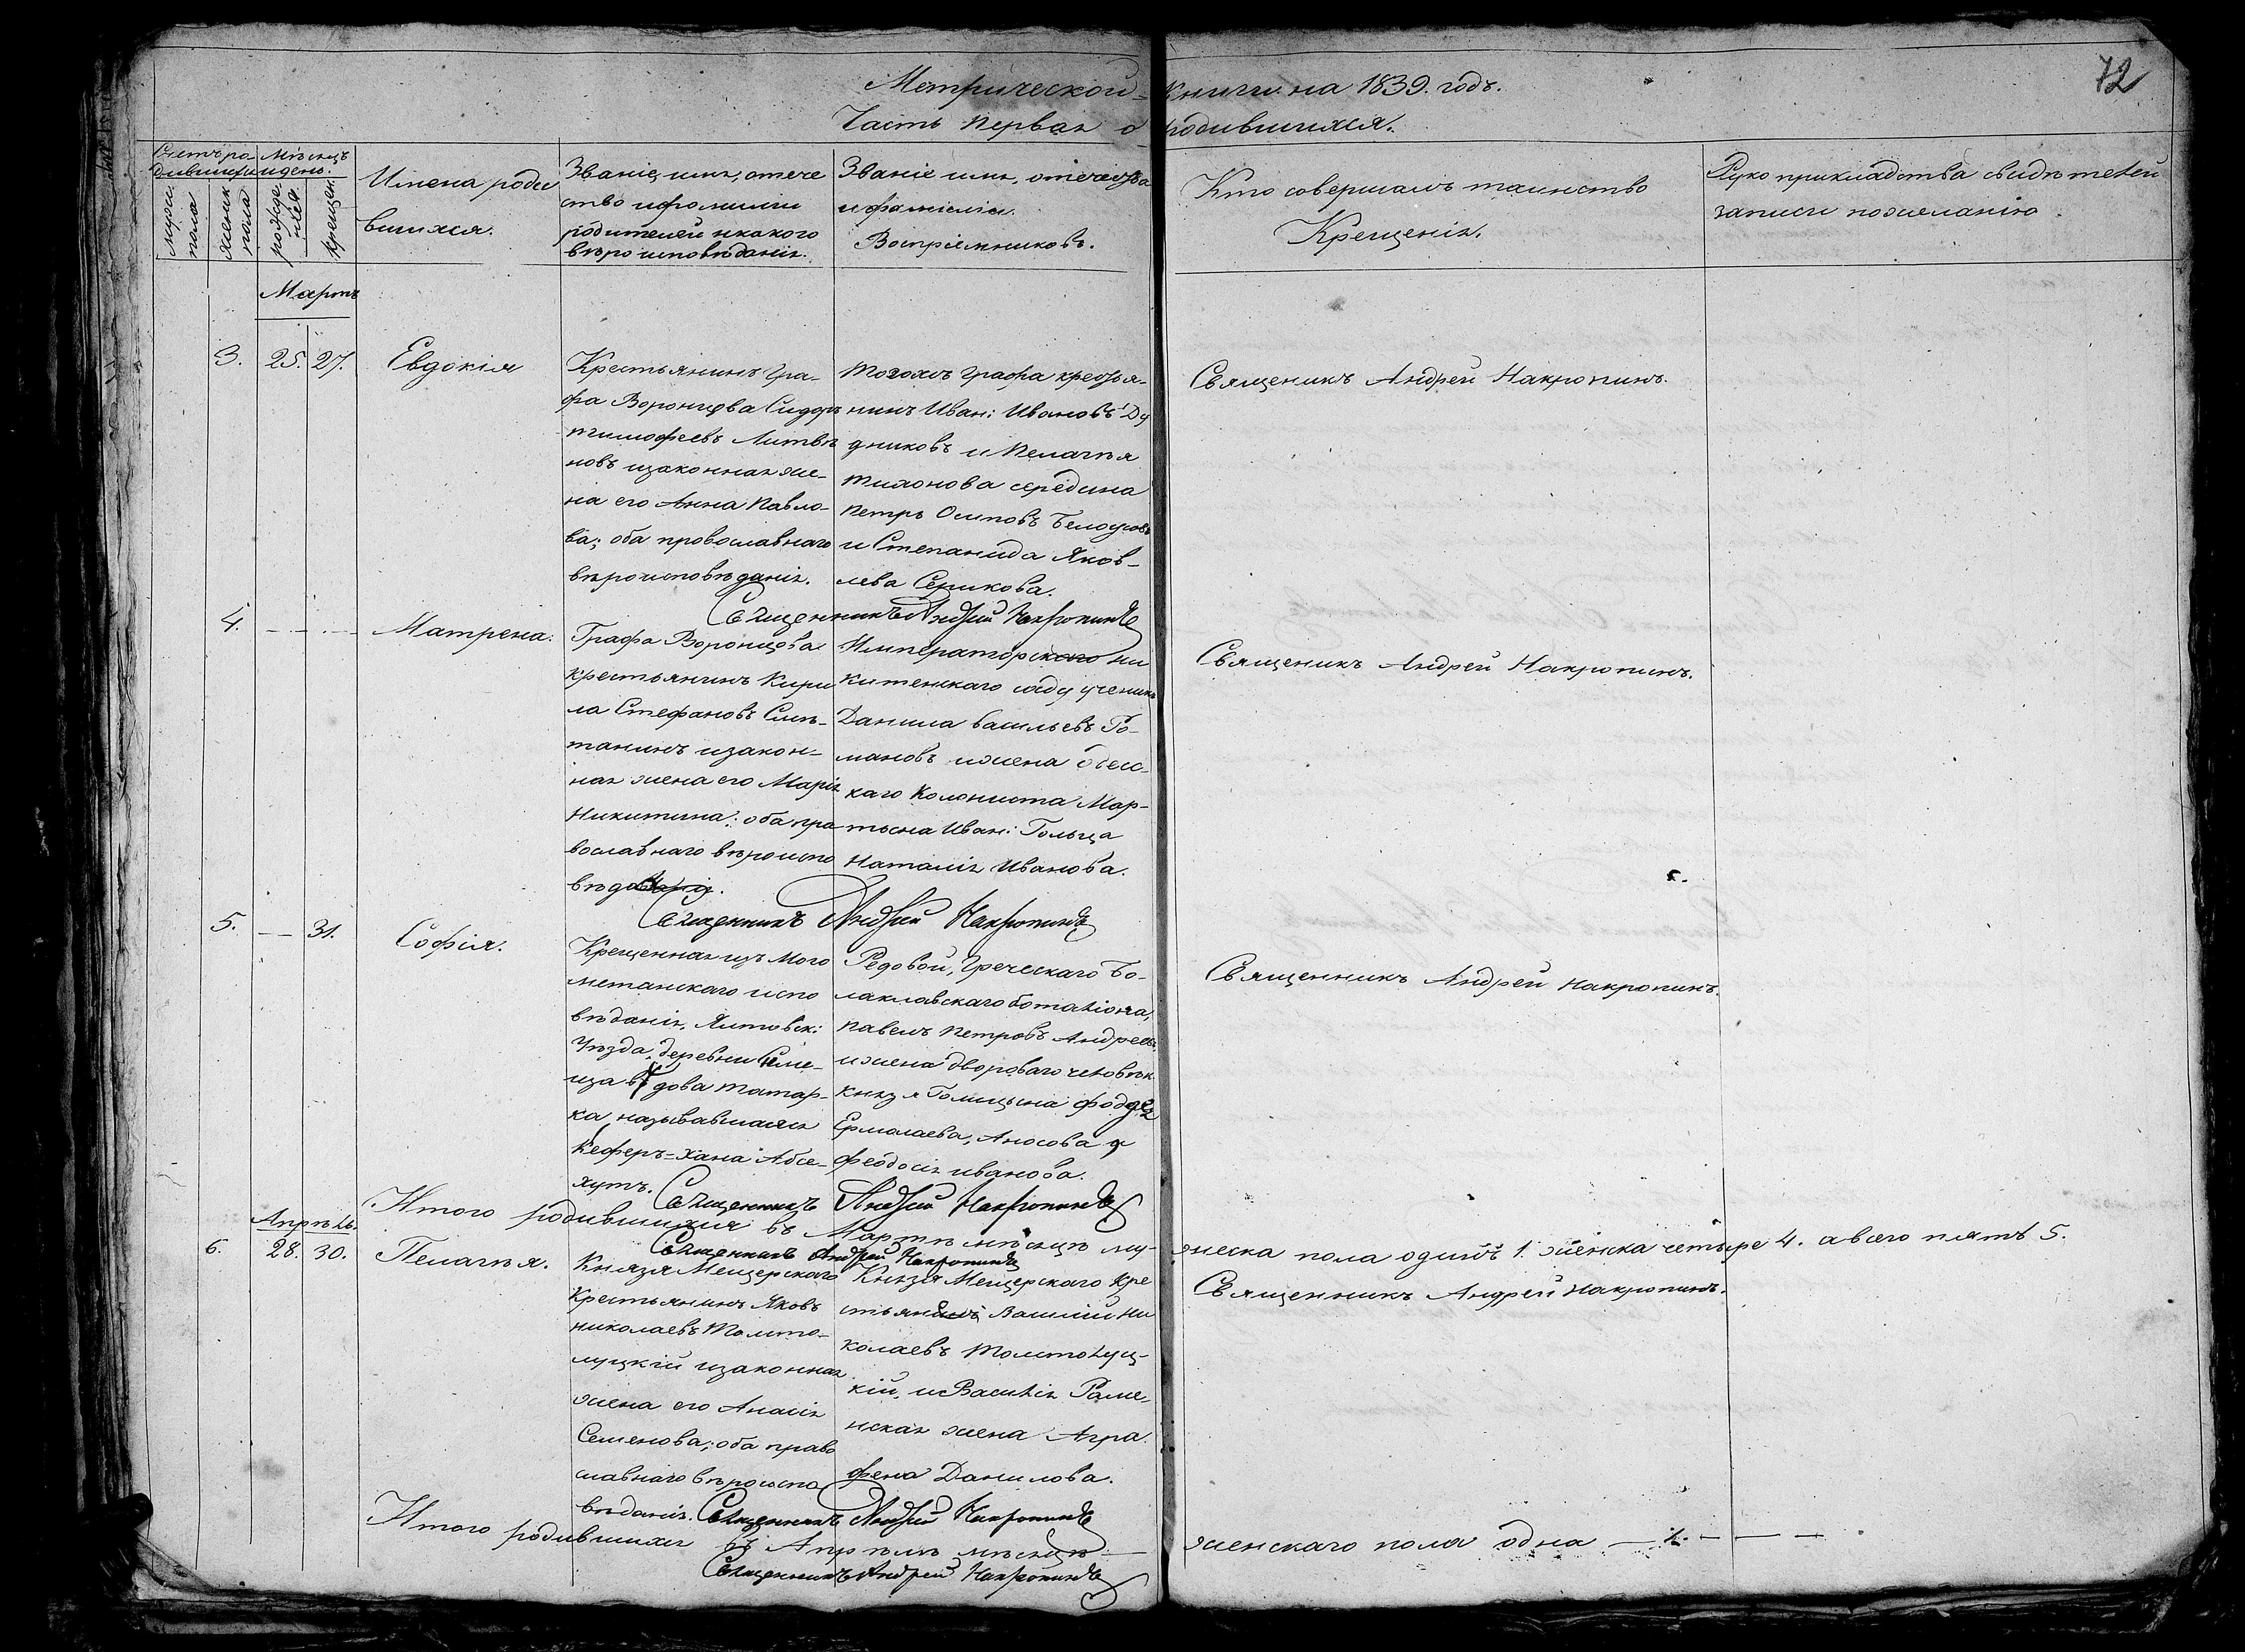 72
Метрической книги на 1839. годъ.
Часть первая о родившихся.
Счетъ ро-
дившихся
Мѣсяцъ
и день.
муж:
пола
женск
пола
рожде
нія
крещен.
Имена роди
вшихся.
Званіе, имя, отече
ство и фомиліи
родителей и какого
вѣроисповѣданія.
Званіе имя, отечества
и фамиліи.
Воспріемниковъ.
Кто совершалъ таинство
Крещенія.
Рукоприкладства свидѣтелей
записи по желанію
Мартъ
3.
25.
27.
Евдокія
Крестьянинъ Гра-
фа Воронцова Сидоръ
тимофеевъ Литви
новъ изаконная же-
на его Анна Павло-
ва; оба провославнаго
вѣроисповѣданія.
тогожъ графа крестья-
нинъ Иван: Ивановъ Ду
дниковъ и Пелагѣя
середина
Петръ Осиповъ Белоусовъ
и Степанида Яков-
лева Серикова.
Священникъ Андрей Накропинъ.
Священникъ Андрей Накропинъ
4.
Матрена.
Графа Воронцова
крестьянинъ Кири
ла Стефановъ Смѣ-
танинъ изакон-
ная жена его Марія
Никитина; оба пра
вославнаго вѣроиспо
вѣданія.
Императорского ни
китенскаго саду ученикъ
Данила васильевъ Го-
мановъ ижена одес-
каго Колониста Мар-
тына Иван: Гольца
Наталія Иванова.
Священикъ Андрей Накропинъ.
Священникъ Андрей Накропинъ
5.
31.
Софія.
Крещенная изъ Маго
метанскаго испо
вѣданія, Ялтовск:
Уѣзда, деревни Симе-
иза вдова татар-
ка называвшаяся
Кеферъ=хана Абсе-
лутъ.
Редовой, Греческаго Бо-
лаклавскаго боталіона,
Павелъ Петровъ Андреевъ
ижена двороваго человѣк
князя Голицына
Ермолаева, Аносова
феодосія иванова.
Священникъ Андрей Накропинъ.
Священникъ Андрей Накропинъ
Итого родившихся въ Мартѣ мѣсяцѣ му-
жеска пола одинъ 1. женска четыре 4. а всего пять 5.
Священникъ Андрей Накропинъ
Апрѣль.
6.
28.
30.
Пелагѣя.
Князя Мещерскаго
Крестьянинъ Яковъ
николаевъ Толсто-
луцкій изаконная
жена его
Семенова; оба право
славнаго вѣроиспо
вѣданія.
Князя Мещерскаго кре
стьянинъ Василій Ни
колаевъ Толстолуц-
кій, и Василія Раме-
нская жена Агра
фена Данилова.
Священникъ Андрей Накропинъ.
Священникъ Андрей Накропинъ
Итого родившихся въ Апрѣлѣ мѣсяцѣ —
женскаго пола одна — 1. — — —
Священникъ Андрей Накропинъ